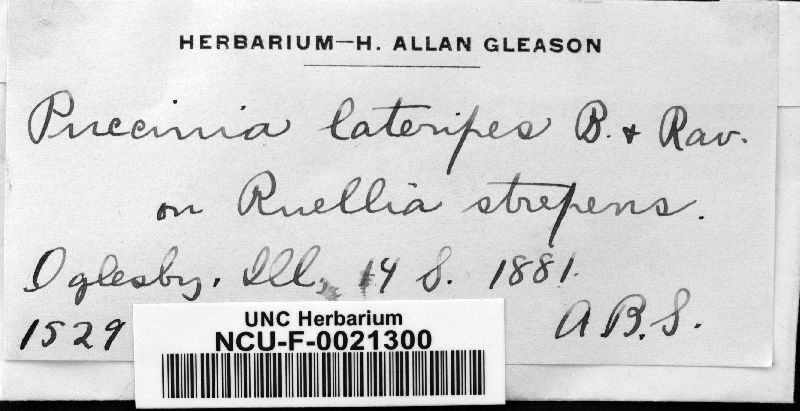 HERBARIUM—H. ALLAN GLEASON
Puccinia lateripes B. & Rav.
on Ruellia strepens.
Oglesby, Ill, 14 S. 1881.
1529
A B. S.
UNC Herbarium
NCU-F-0021300